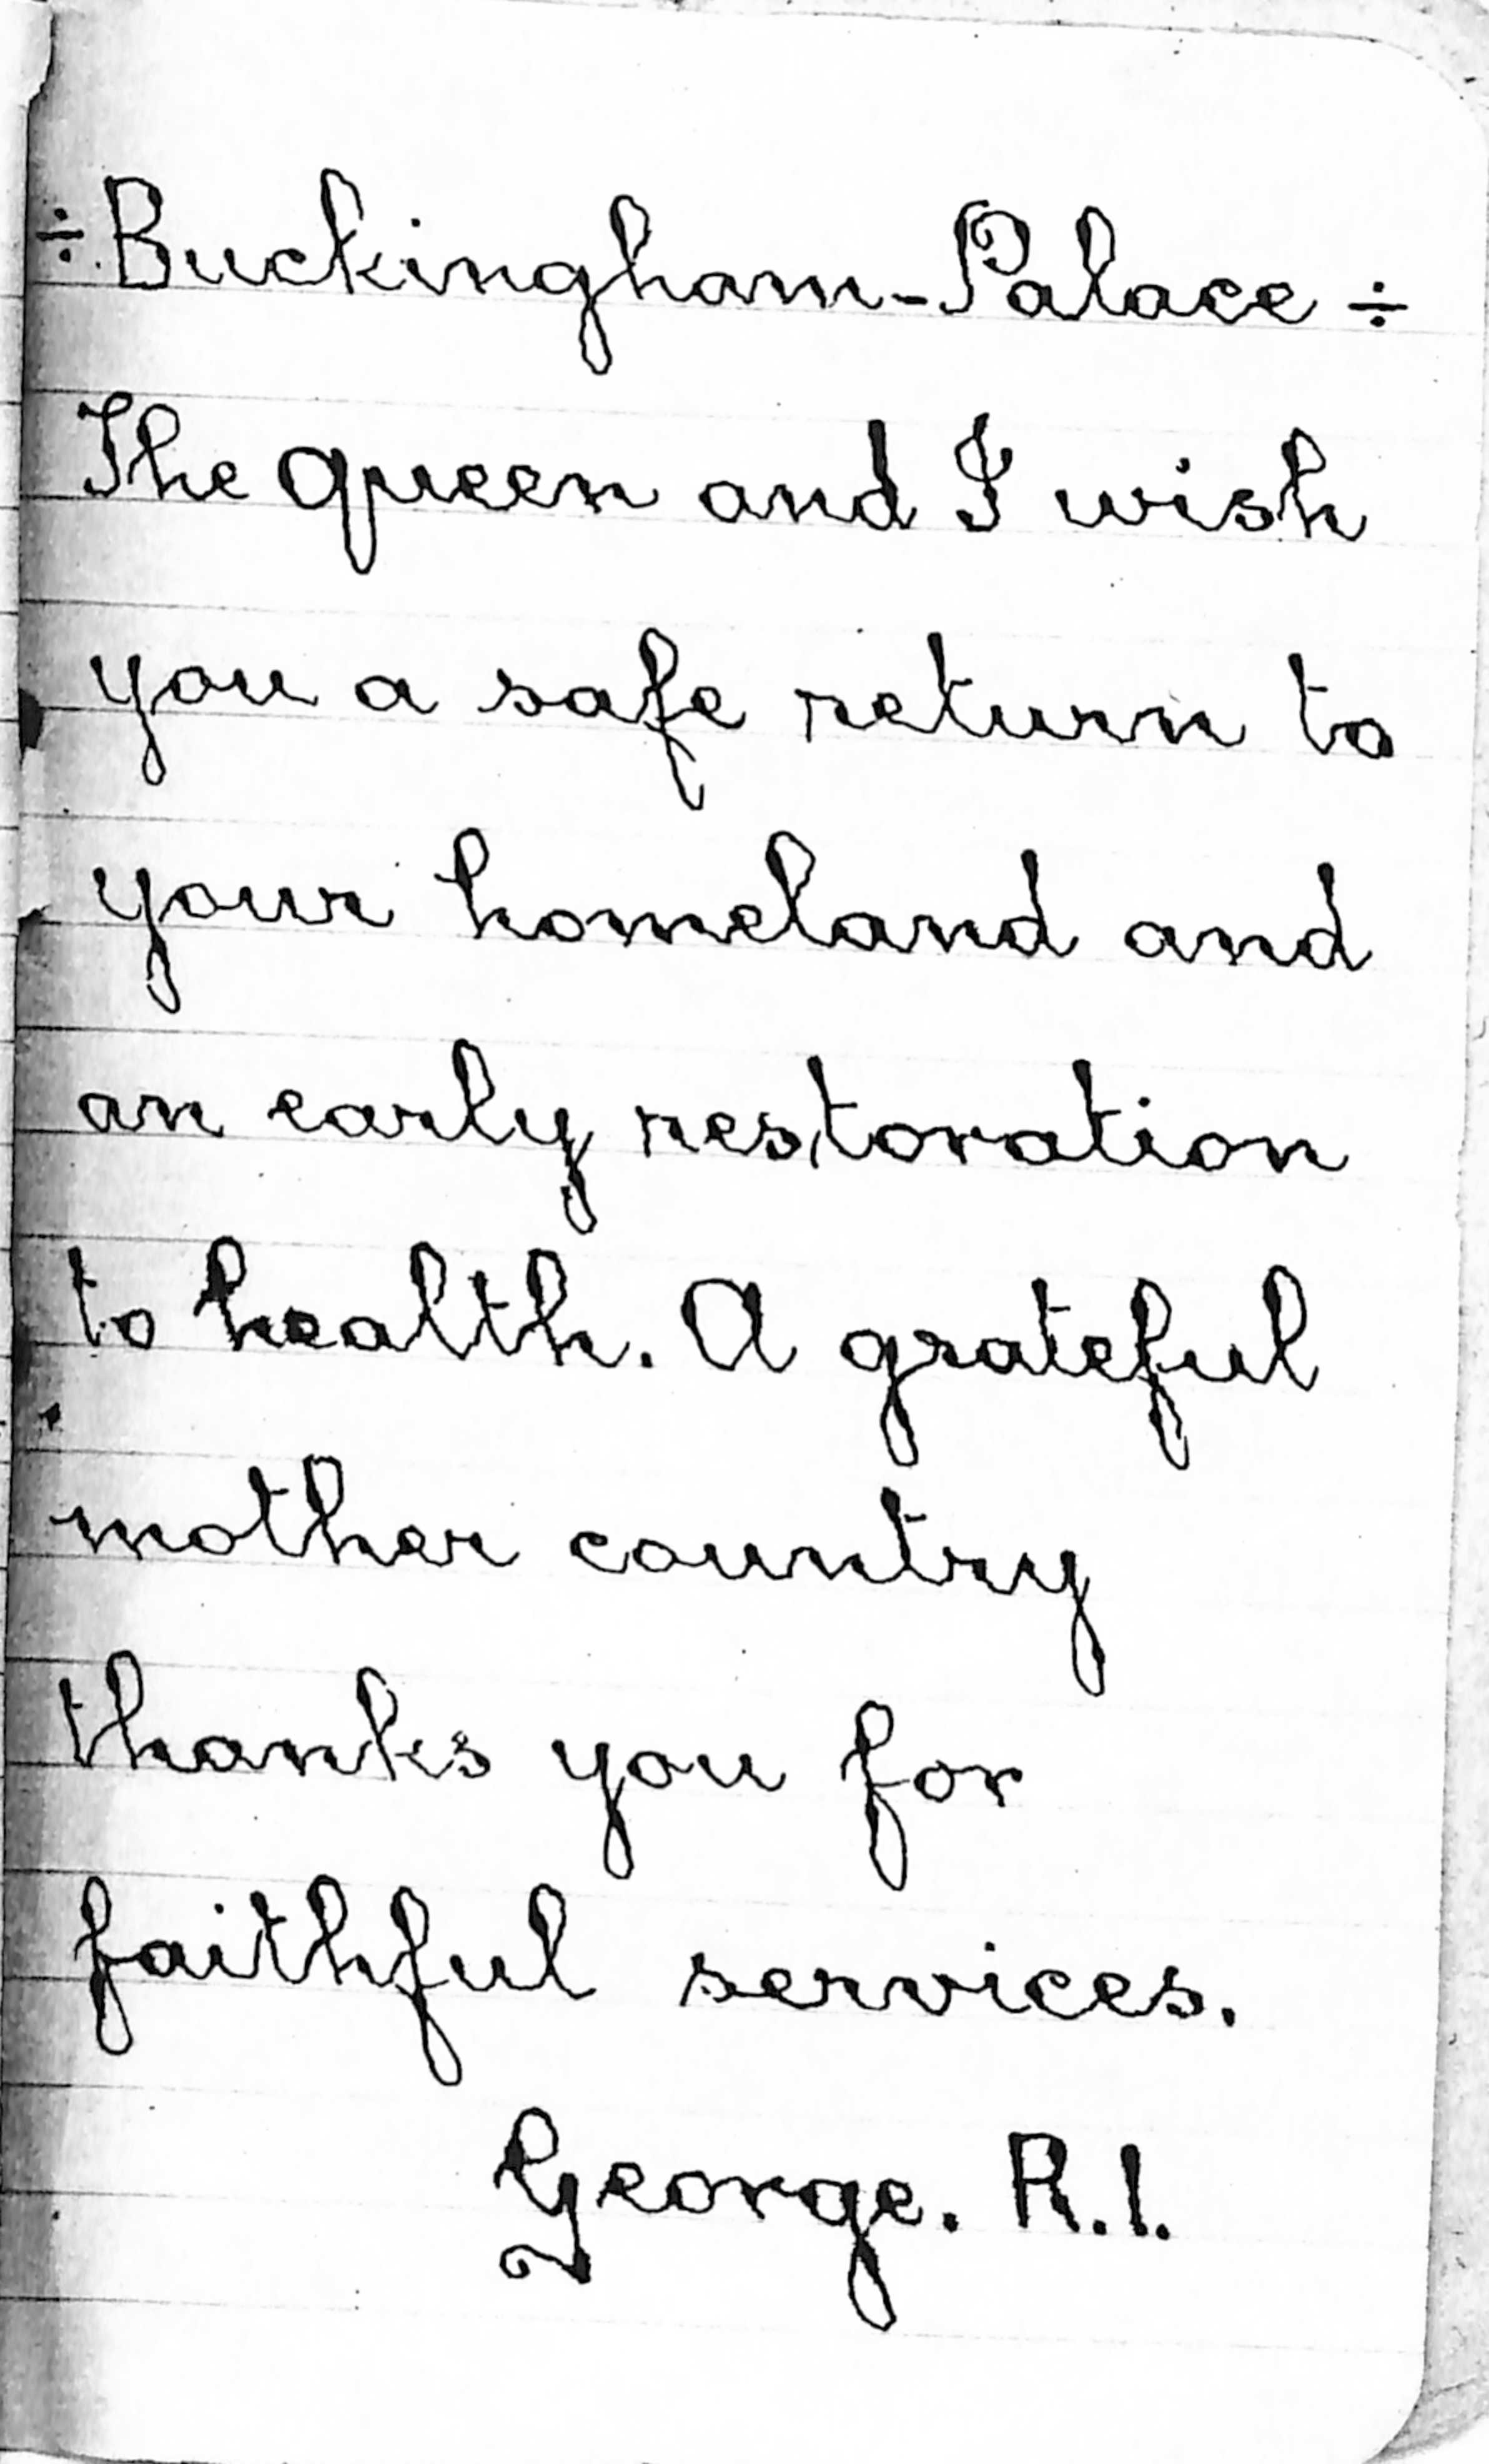 ÷ Buckingham-Palace ÷
The queen and I wish
you a safe return to
your homeland and
an early restoration
to health. A grateful
mother country
thanks you for
faithful services.
George. R.I.